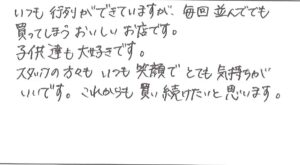 いつも行列ができていますが、毎回並んででも
買ってしまうおいしいお店です。
子供達も大好きです。
スタッフの方々もいつも笑顔でとても気持ちが
いいです。これからも買い続けたいと思います。